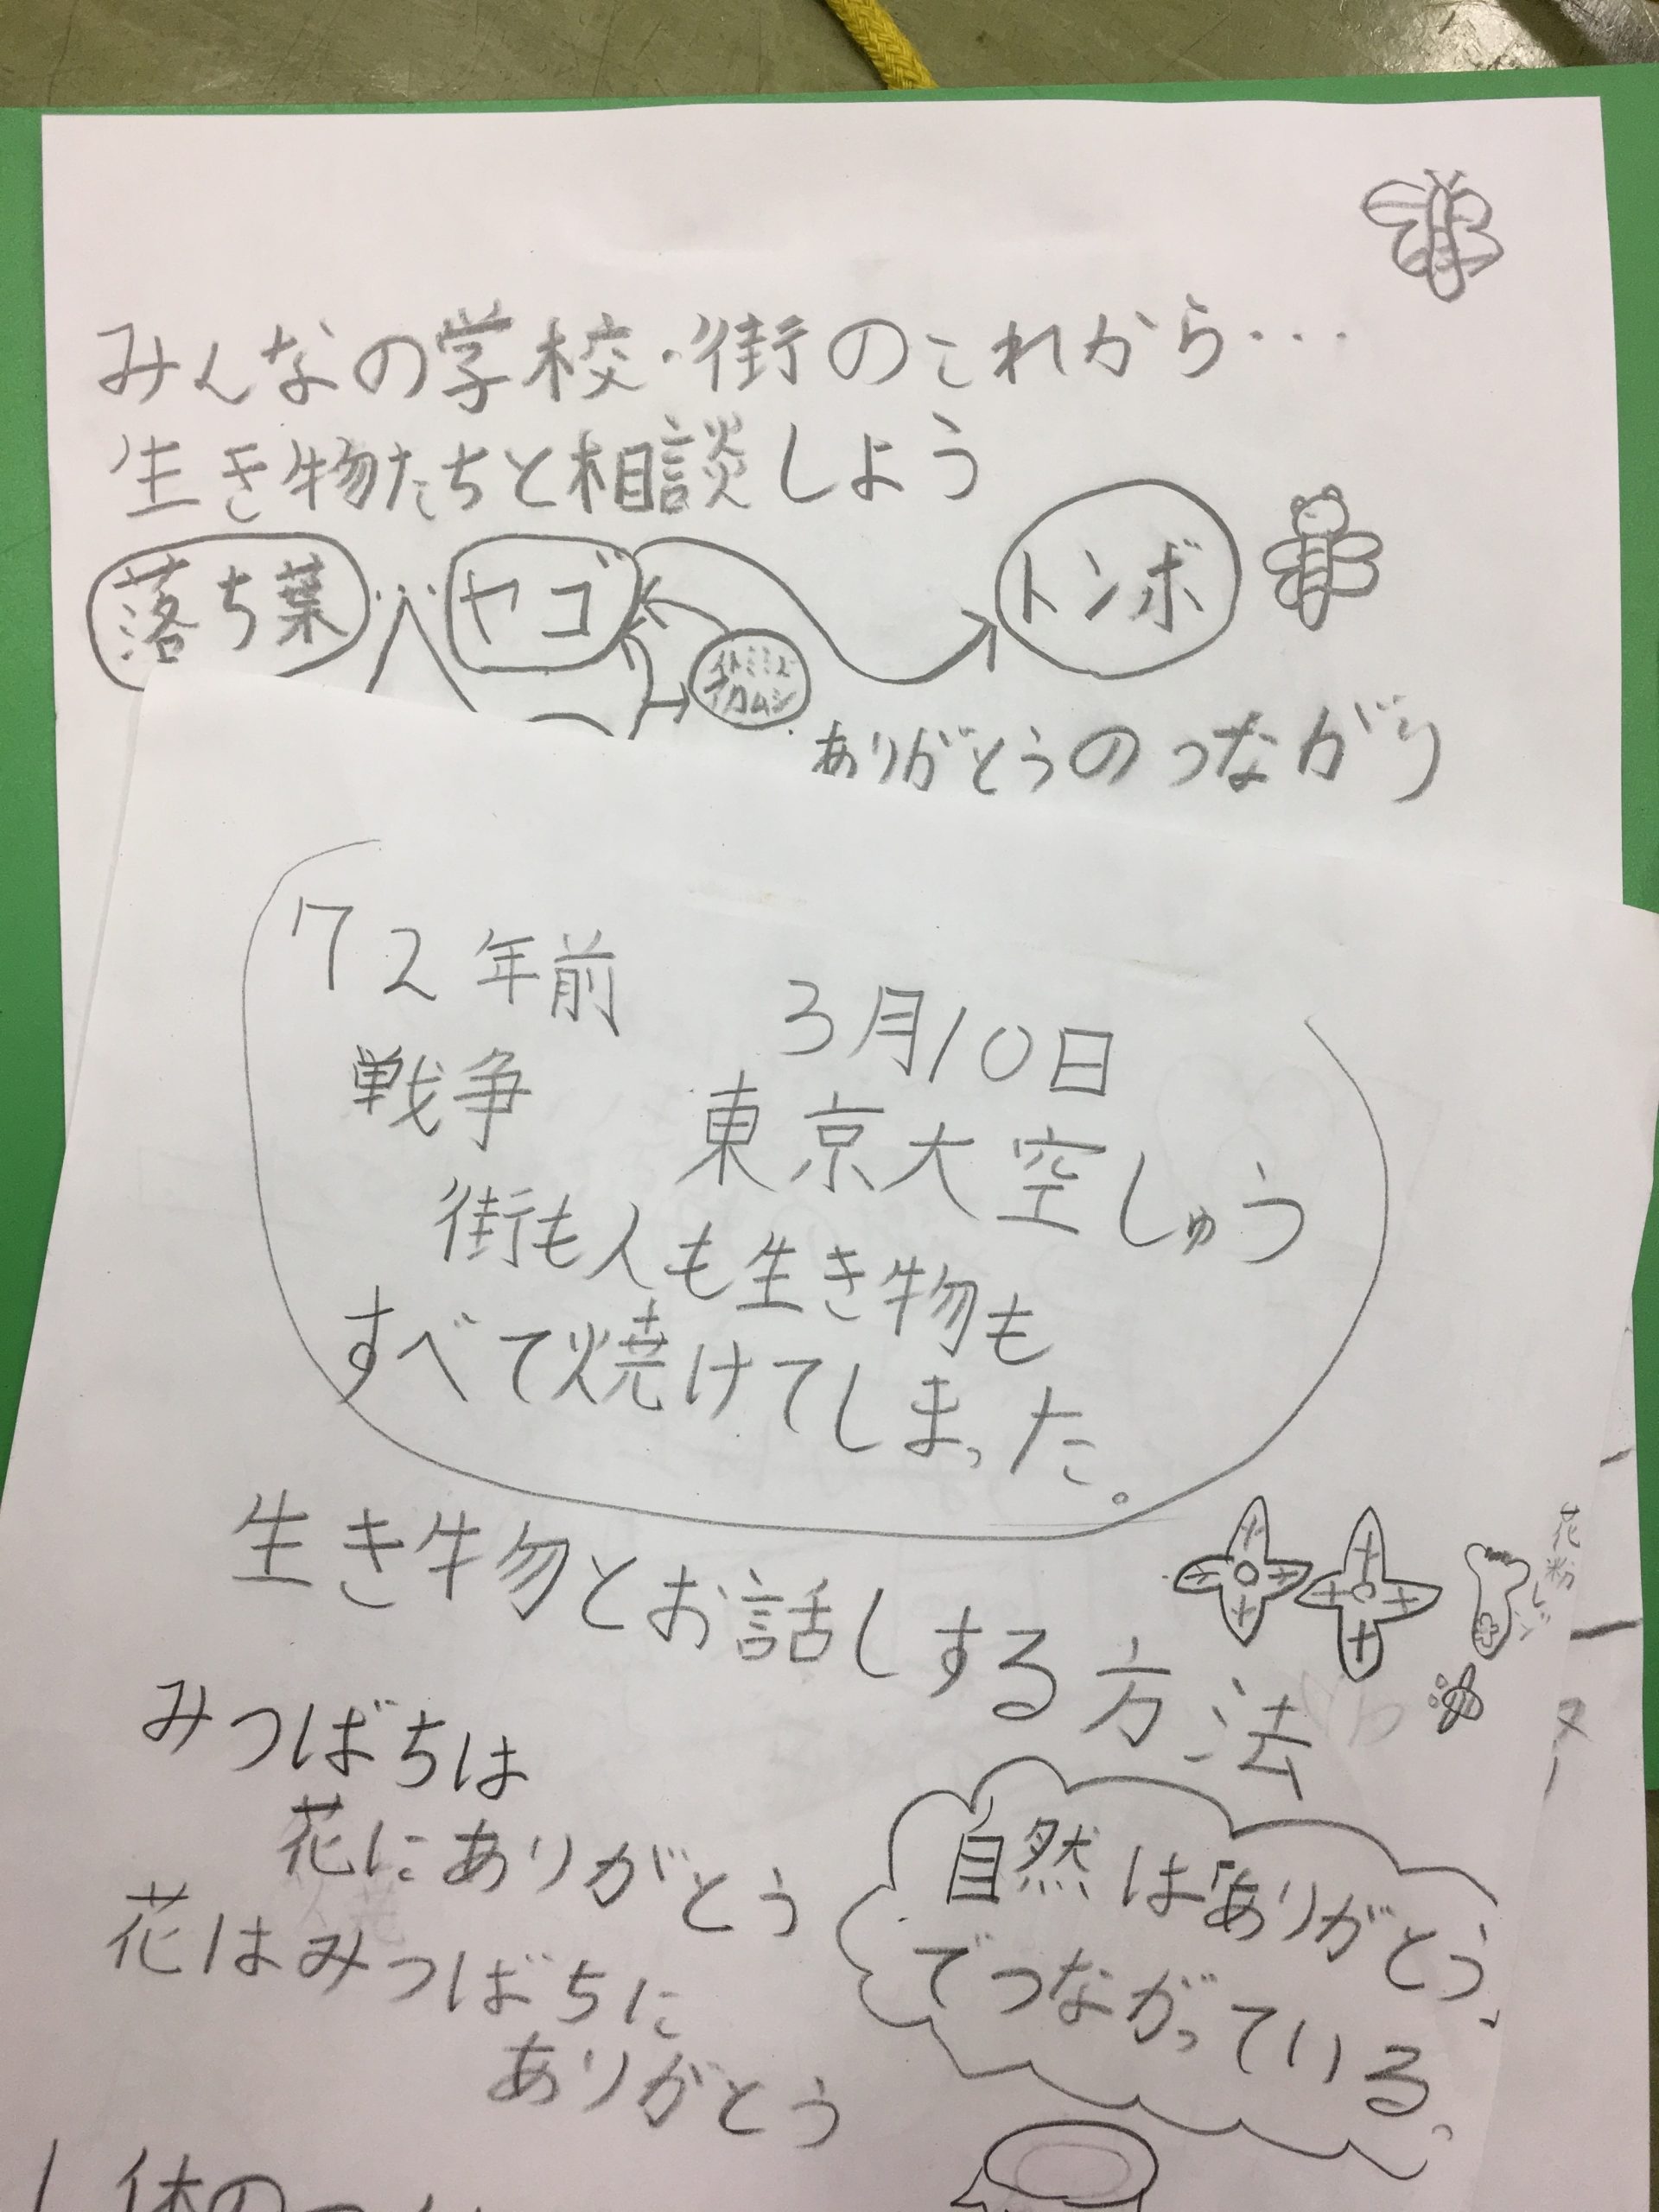 みんなの学校・街のこれから・・・
生き物たちと相談しよう
落ち葉
ヤゴ
トンボ
イトミミズ
アカムシ
ありがとうのつながり
72年前
3月10日
戦争
東京大空しゅう
街も人も生き物も
すべて焼けてしまった。
生き物とお話しする方法
花粉
みつばちは
花にありがとう
花はみつばちに
ありがとう
自然は「ありがとう」
でつながっている。